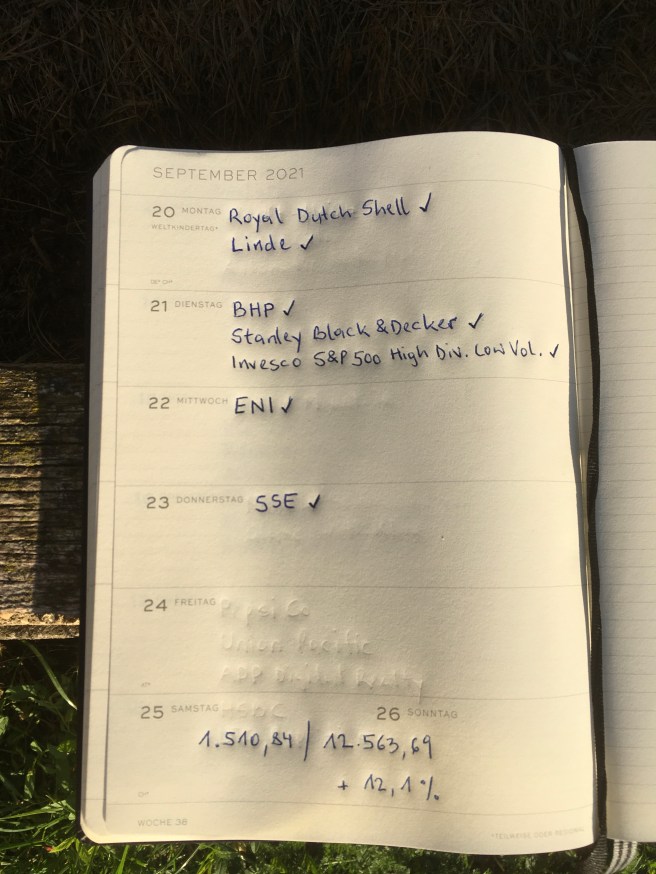 SEPTEMBER 2021
20 MONTAG Royal Dutch Shell ✓
WELTKINDERTAG*
Linde ✓
21 DIENSTAG BHP ✓
Stanley Black & Decker ✓
Invesco S&P 500 High Div. Low Vol. ✓
22 MITTWOCH ENI ✓
23 DONNERSTAG SSE ✓
24 FREITAG Pepsi Co
Union Pacific
ADP Digital Realty
25 SAMSTAG 26 SONNTAG
1.510,84 / 12.563,69
+ 12,1 %
WOCHE 38
*TEILWEISE ODER REGIONAL